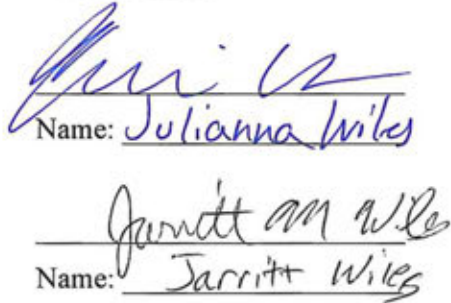 Name: Julianna Wiles
Jarritt M Wiles
Name: Jarritt Wiles